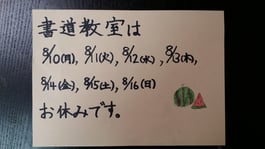 書道教室は
8/10(月), 8/11(火), 8/12(水), 8/13(木),
8/14(金), 8/15(土), 8/16(日)
お休みです。